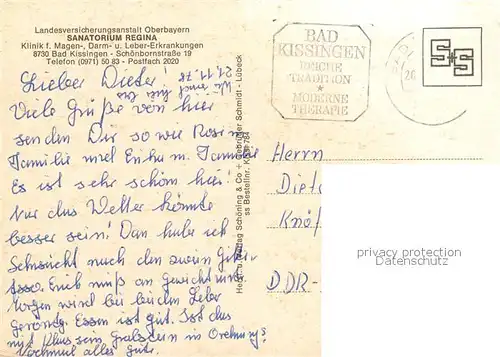 Landesversicherungsanstalt Oberbayern
SANATORIUM REGINA
Klinik f. Magen-, Darm- u. Leber-Erkrankungen
8730 Bad Kissingen - Schönbornstraße 19
Telefon (0971) 50 83 - Postfach 2020
21.11.78
Lieber Dieter!
Viele Grüße von hier
senden Dir so wie Rosi u.
Familie und u. Familie
Es ist sehr schön hier!
Nur das Wetter könnte
besser sein! Dan habe ich
Sehnsucht nach den zwein
Erich muß an Gewicht und
wird bei beiden Leber
Essen ist gut. Ist das
mit Klaus sein in Ordnung?
Nochmal alles gute.
Herst. u. Verlag Schöning & Co + Gebrüder Schmidt - Lübeck
ss Bestellnr. 784
BAD
KISSINGEN
TRADITION
*
MODERNE
THERAPIE
S+S
Herrn
Diet
Knöf
DDR-
privacy protection
Datenschutz